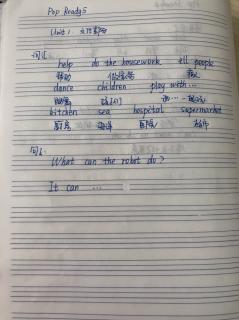 Pop Ready5
Unit 1
词汇
help do the housework ill people
帮助 做家务 病人
dance children play with...
跳舞 孩子们
kitchen sea hospital supermarket
厨房 海洋 医院 超市
What can the robot do?
It can ...